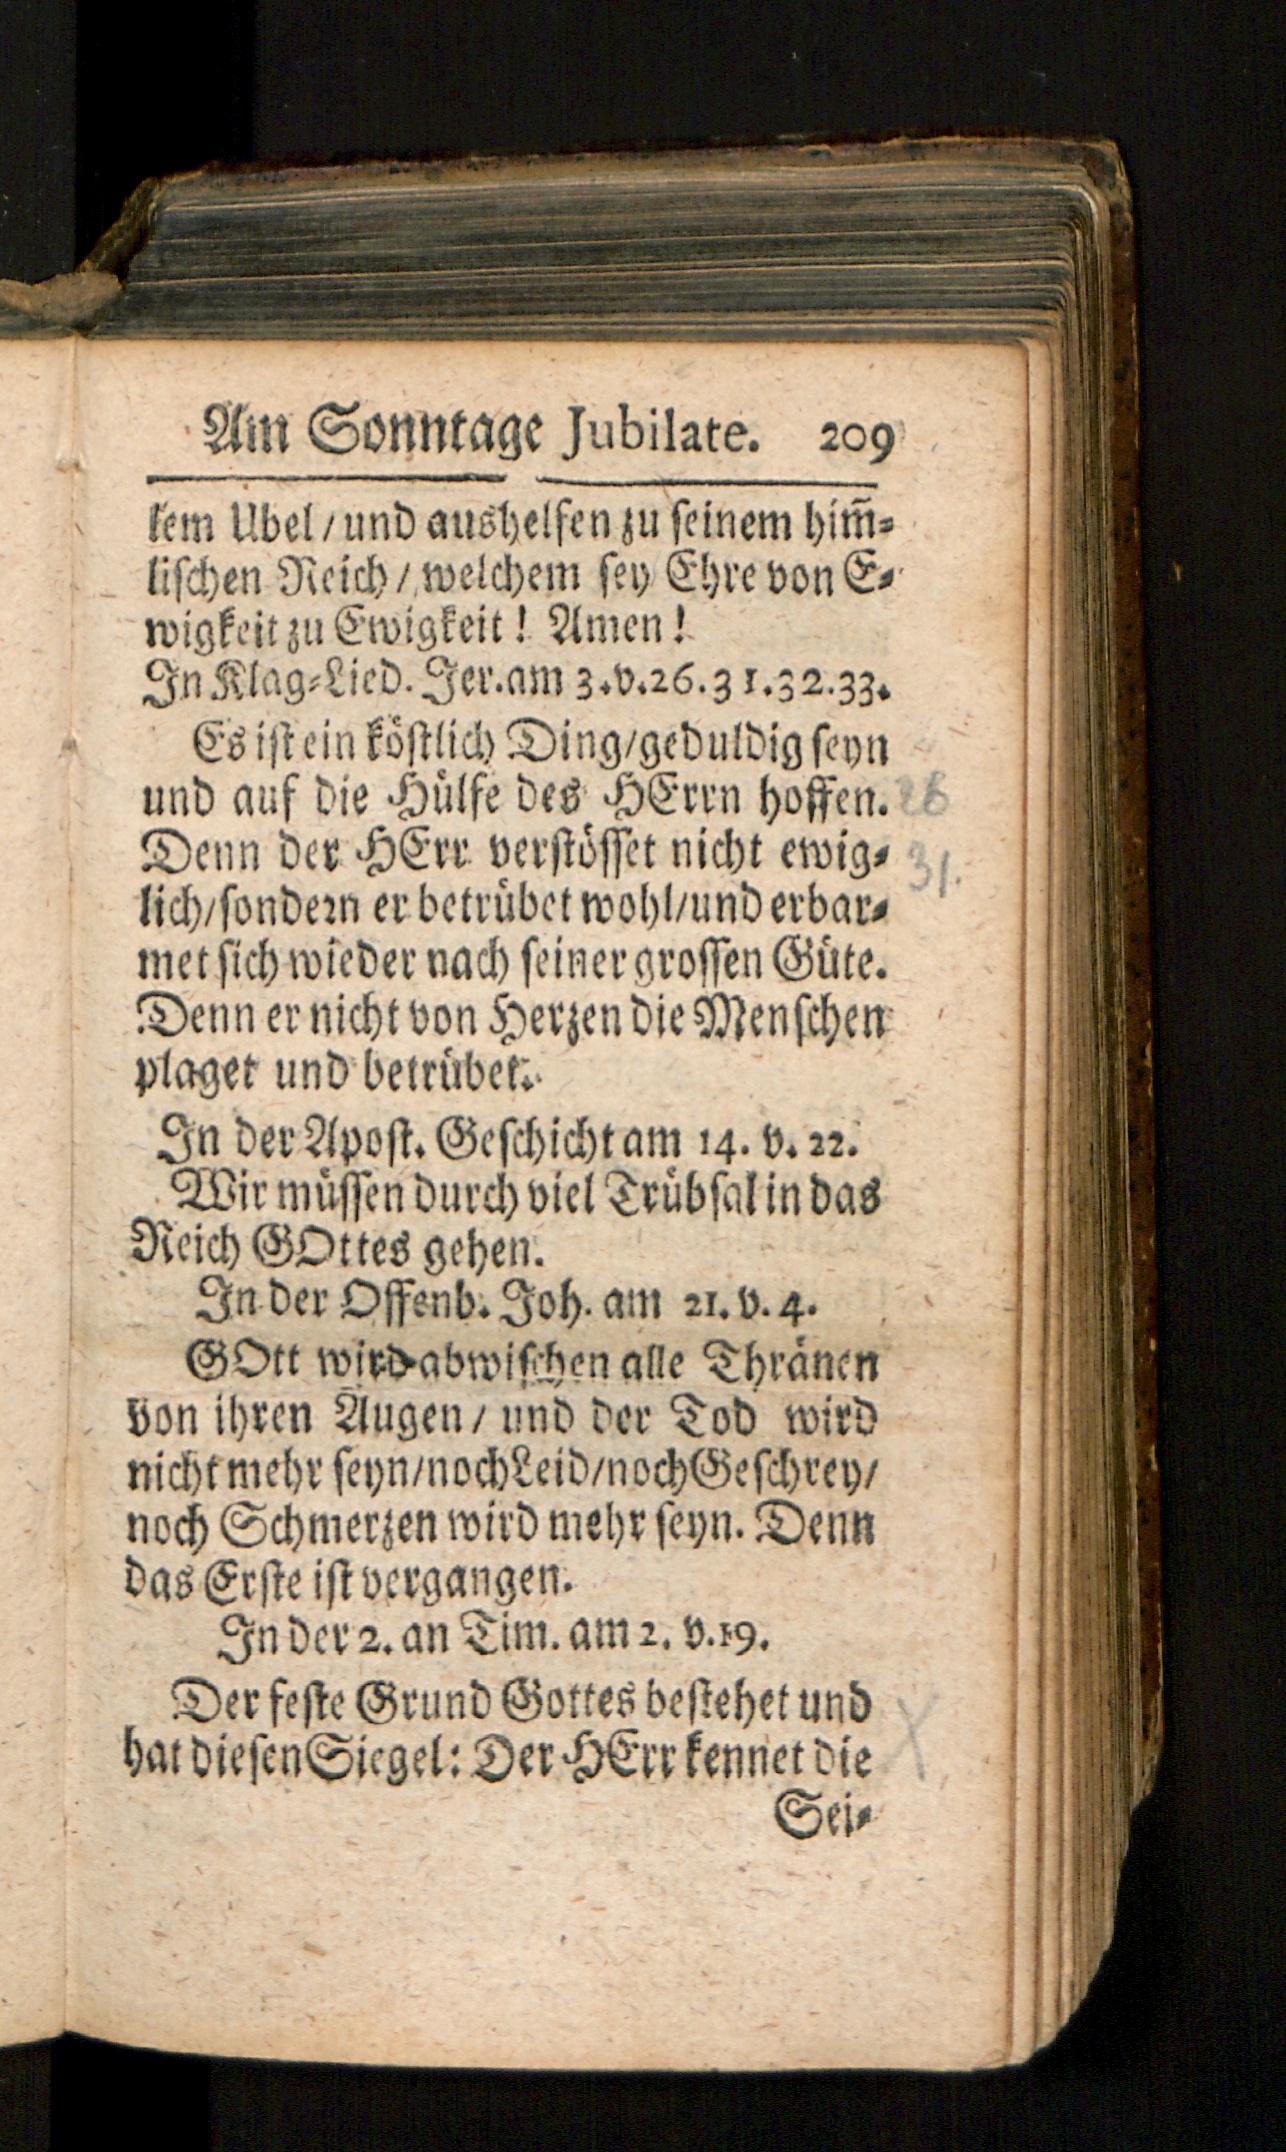 Am Sonntage Jubilate. 209
lem Ubel / und aushelfen zu seinem him̃-
lischen Reich / welchem sey Ehre von E-
wigkeit zu Ewigkeit! Amen!
In Klag-Lied. Jer. am 3. v. 26. 31. 32. 33.
Es ist ein köstlich Ding / geduldig seyn
und auf die Hülfe des HErrn hoffen. 26
Denn der HErr verstösset nicht ewig- 31.
lich / sondern er betrübet wohl / und erbar-
met sich wieder nach seiner grossen Güte.
Denn er nicht von Herzen die Menschen
plaget und betrübet.
In der Apost. Geschicht am 14. v. 22.
Wir müssen durch viel Trübsal in das
Reich GOttes gehen.
In der Offenb. Joh. am 21. v. 4.
GOtt wird abwischen alle Thränen
von ihren Augen / und der Tod wird
nicht mehr seyn / noch Leid / noch Geschrey /
noch Schmerzen wird mehr seyn. Denn
das Erste ist vergangen.
In der 2. an Tim. am 2. v. 19.
Der feste Grund Gottes bestehet und
hat diesen Siegel: Der HErr kennet die
Sei-